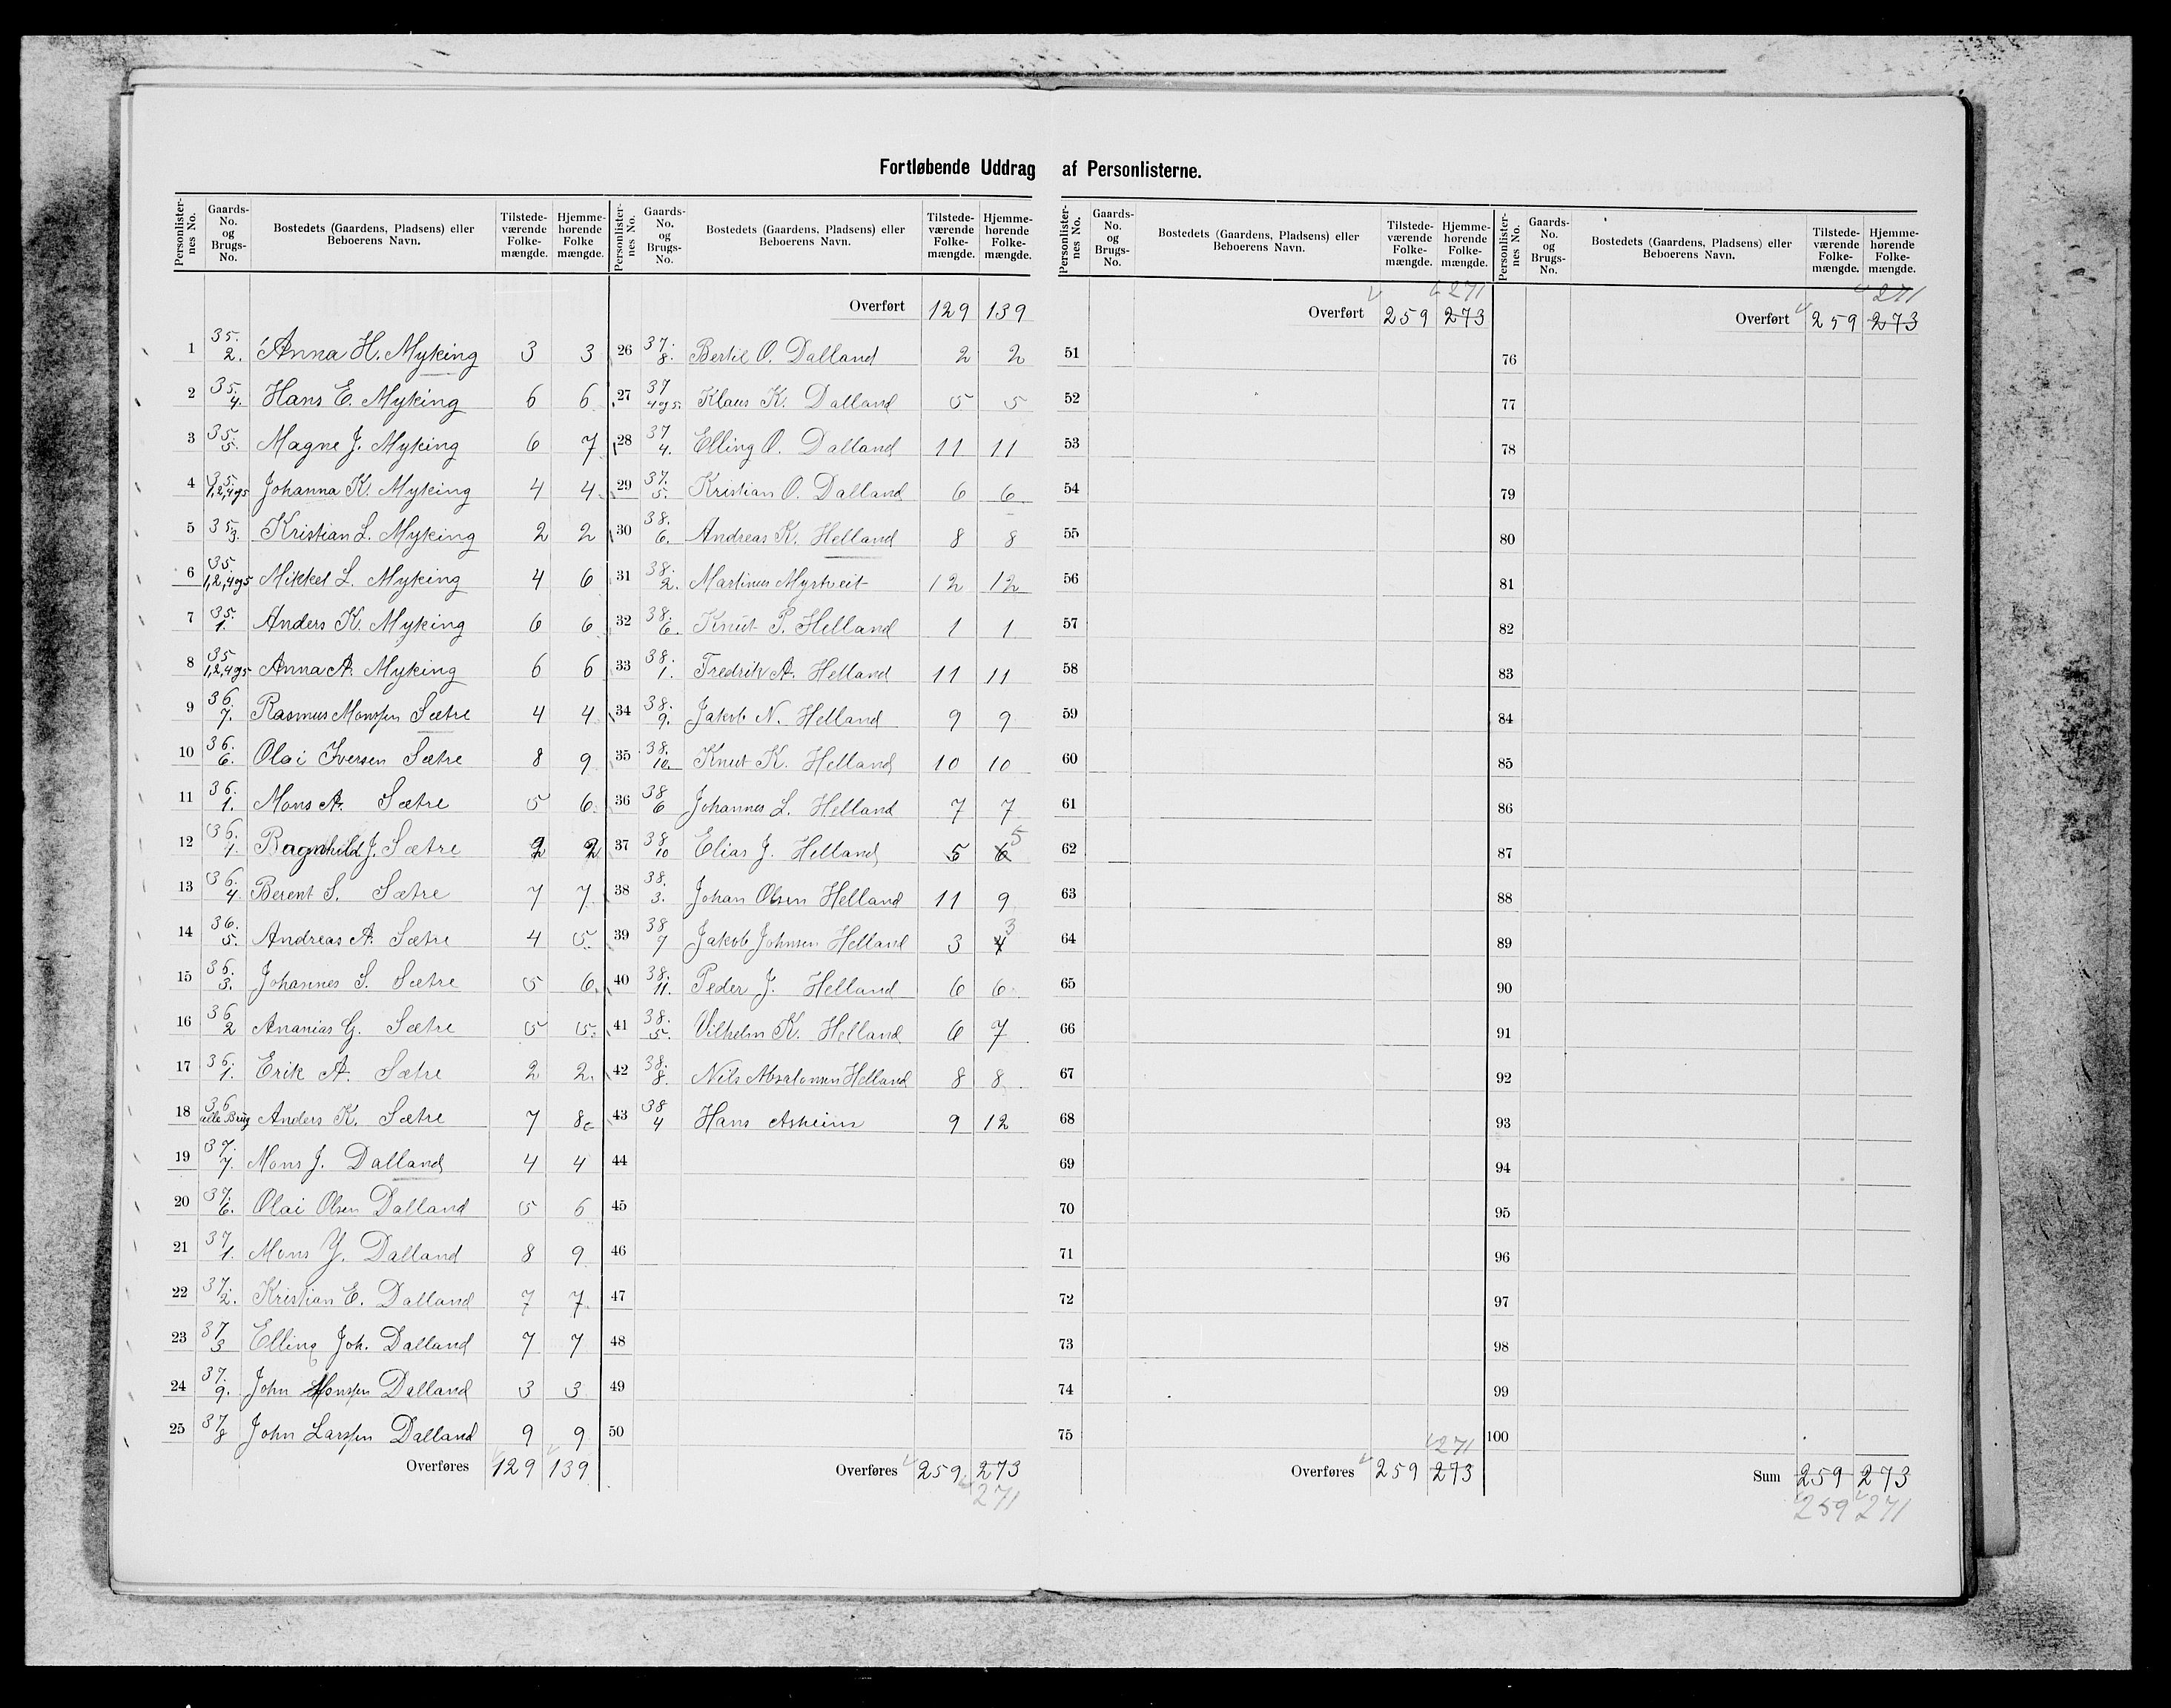 Fortløbende Uddrag af Personlisterne.
Personlisternes No. Gaards-No. og Brugs-No. Bostedets (Gaardens, Pladsens) eller Beboerens Navn. Tilstedeværende Folkemængde. Hjemmehørende Folkemængde.
1 35. 2. Anna H. Myking 3 3
2 35. 4. Hans E. Myking 6 6
3 35. 5. Magne J. Myking 6 7
4 35. 1,2,4og5 Johanna K. Myking 4 4
5 35. 3. Kristian L. Myking 2 2
6 35 1,2,4og5 Mikkel L. Myking 4 6
7 35. 1. Anders K. Myking 6 6
8 35 1,2,4og5 Anna A. Myking 6 6
9 36. 7. Rasmus Monssen Sætre 4 4
10 36. 6. Olai Iversen Sætre 8 9
11 36. 1. Mons A. Sætre 5 6
12 36. 1. Ragnhild J. Sætre 2 2
13 36. 4. Berent S. Sætre 7 7
14 36. 5. Andreas A. Sætre 4 5
15 36. 3. Johannes S. Sætre 5 6
16 36 2 Ananias G. Sætre 5 5
17 36. 1. Erik A. Sætre 2 2
18 36 alle Brug Anders K. Sætre 7 8
19 37. 7. Mons J. Dalland 4 4
20 37. 6. Olai Olsen Dalland 5 6
21 37 1. Mons Y. Dalland 8 9
22 37. 2. Kristian E. Dalland 7 7
23 37 3 Elling Joh. Dalland 7 7
24 37. 9. John Monssen Dalland 3 3
25 37 8 John Larssen Dalland 9 9
Overføres 129 139
Personlisternes No. Gaards-No. og Brugs-No. Bostedets (Gaardens, Pladsens) eller Beboerens Navn. Tilstedeværende Folkemængde. Hjemmehørende Folkemængde.
Overført 129 139
26 37. 8. Bertil O. Dalland 2 2
27 37 4og5. Klaus K. Dalland 5 5
28 37 4. Elling O. Dalland 11 11
29 37. 5. Kristian O. Dalland 6 6
30 38. 6. Andreas K. Helland 8 8
31 38. 2. Martinus Myrtveit 12 12
32 38. 6. Knut P. Helland 1 1
33 38. 1. Fredrik A. Helland 11 11
34 38. 9. Jakob N. Helland 9 9
35 38. 10. Knut K. Helland 10 10
36 38 6 Johannes L. Helland 7 7
37 38 10 Elias J. Helland 5 6 5
38 38. 3. Johan Olsen Helland 11 9
39 38 7 Jakob Johnsen Helland 3 4 3
40 38. 11. Peder J. Helland 6 6
41 38. 5. Vilhelm K. Helland 6 7
42 38. 8. Nils Absalonsen Helland 8 8
43 38 4 Hans Askeim 9 12
44
45
46
47
48
49
50
Overføres 259 273
271
Personlisternes No. Gaards-No. og Brugs-No. Bostedets (Gaardens, Pladsens) eller Beboerens Navn. Tilstedeværende Folkemængde. Hjemmehørende Folkemængde.
271
Overført 259 273
51
52
53
54
55
56
57
58
59
60
61
62
63
64
65
66
67
68
69
70
71
72
73
74
75
271
Overføres 259 273
Personlisternes No. Gaards-No. og Brugs-No. Bostedets (Gaardens, Pladsens) eller Beboerens Navn. Tilstedeværende Folkemængde. Hjemmehørende Folkemængde.
271
Overført 259 273
76
77
78
79
80
81
82
83
84
85
86
87
88
89
90
91
92
93
94
95
96
97
98
99
100
Sum 259 273
259 271